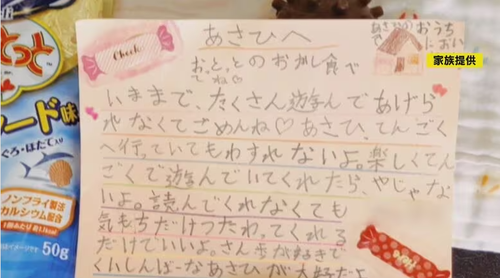 とっと
ード味
ぐろ・ほたて入り
ノンフライ製法
カルシウム配合
50g
Check
あさひへ
おっとっとのおかし食べ
てね♡
あさひの
おうち
におい
家族提供
いままで、たくさん遊んであげら
れなくてごめんね♡あさひ、てんごく
へ行っていてもわすれないよ。楽しくてん
ごくで遊んでいてくれたら、やじゃな
いよ。読んでくれなくても
気もちだけつたわってくれる
だけでいいよ。さんぽが好きで
くいしんぼーなあさひが大好だよ